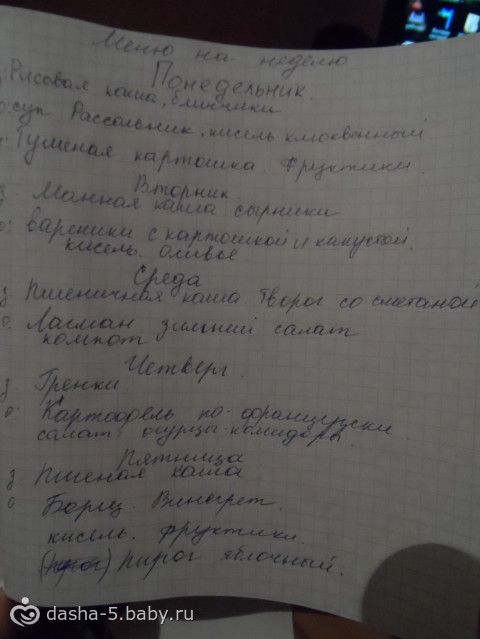 Меню на неделю
Понедельник.
з: Рисовая каша, блинчики
о: суп Рассольник, кисель клюквенный
Тушеная картошка. Фруктики.
Вторник.
з Манная каша сырники
о: вареники с картошкой и капустой.
кисель. оливье.
Среда
з. Пшеничная каша. Творог со сметаной
о. Лагман зимний салат
компот
Четверг.
з Гренки.
о. Картофель по-француски
салат: огурцы-помидоры
Пятница
з Пшеная каша
о Борщ. Винегрет.
кисель. Фруктики.
пирог яблочный.
dasha-5.baby.ru